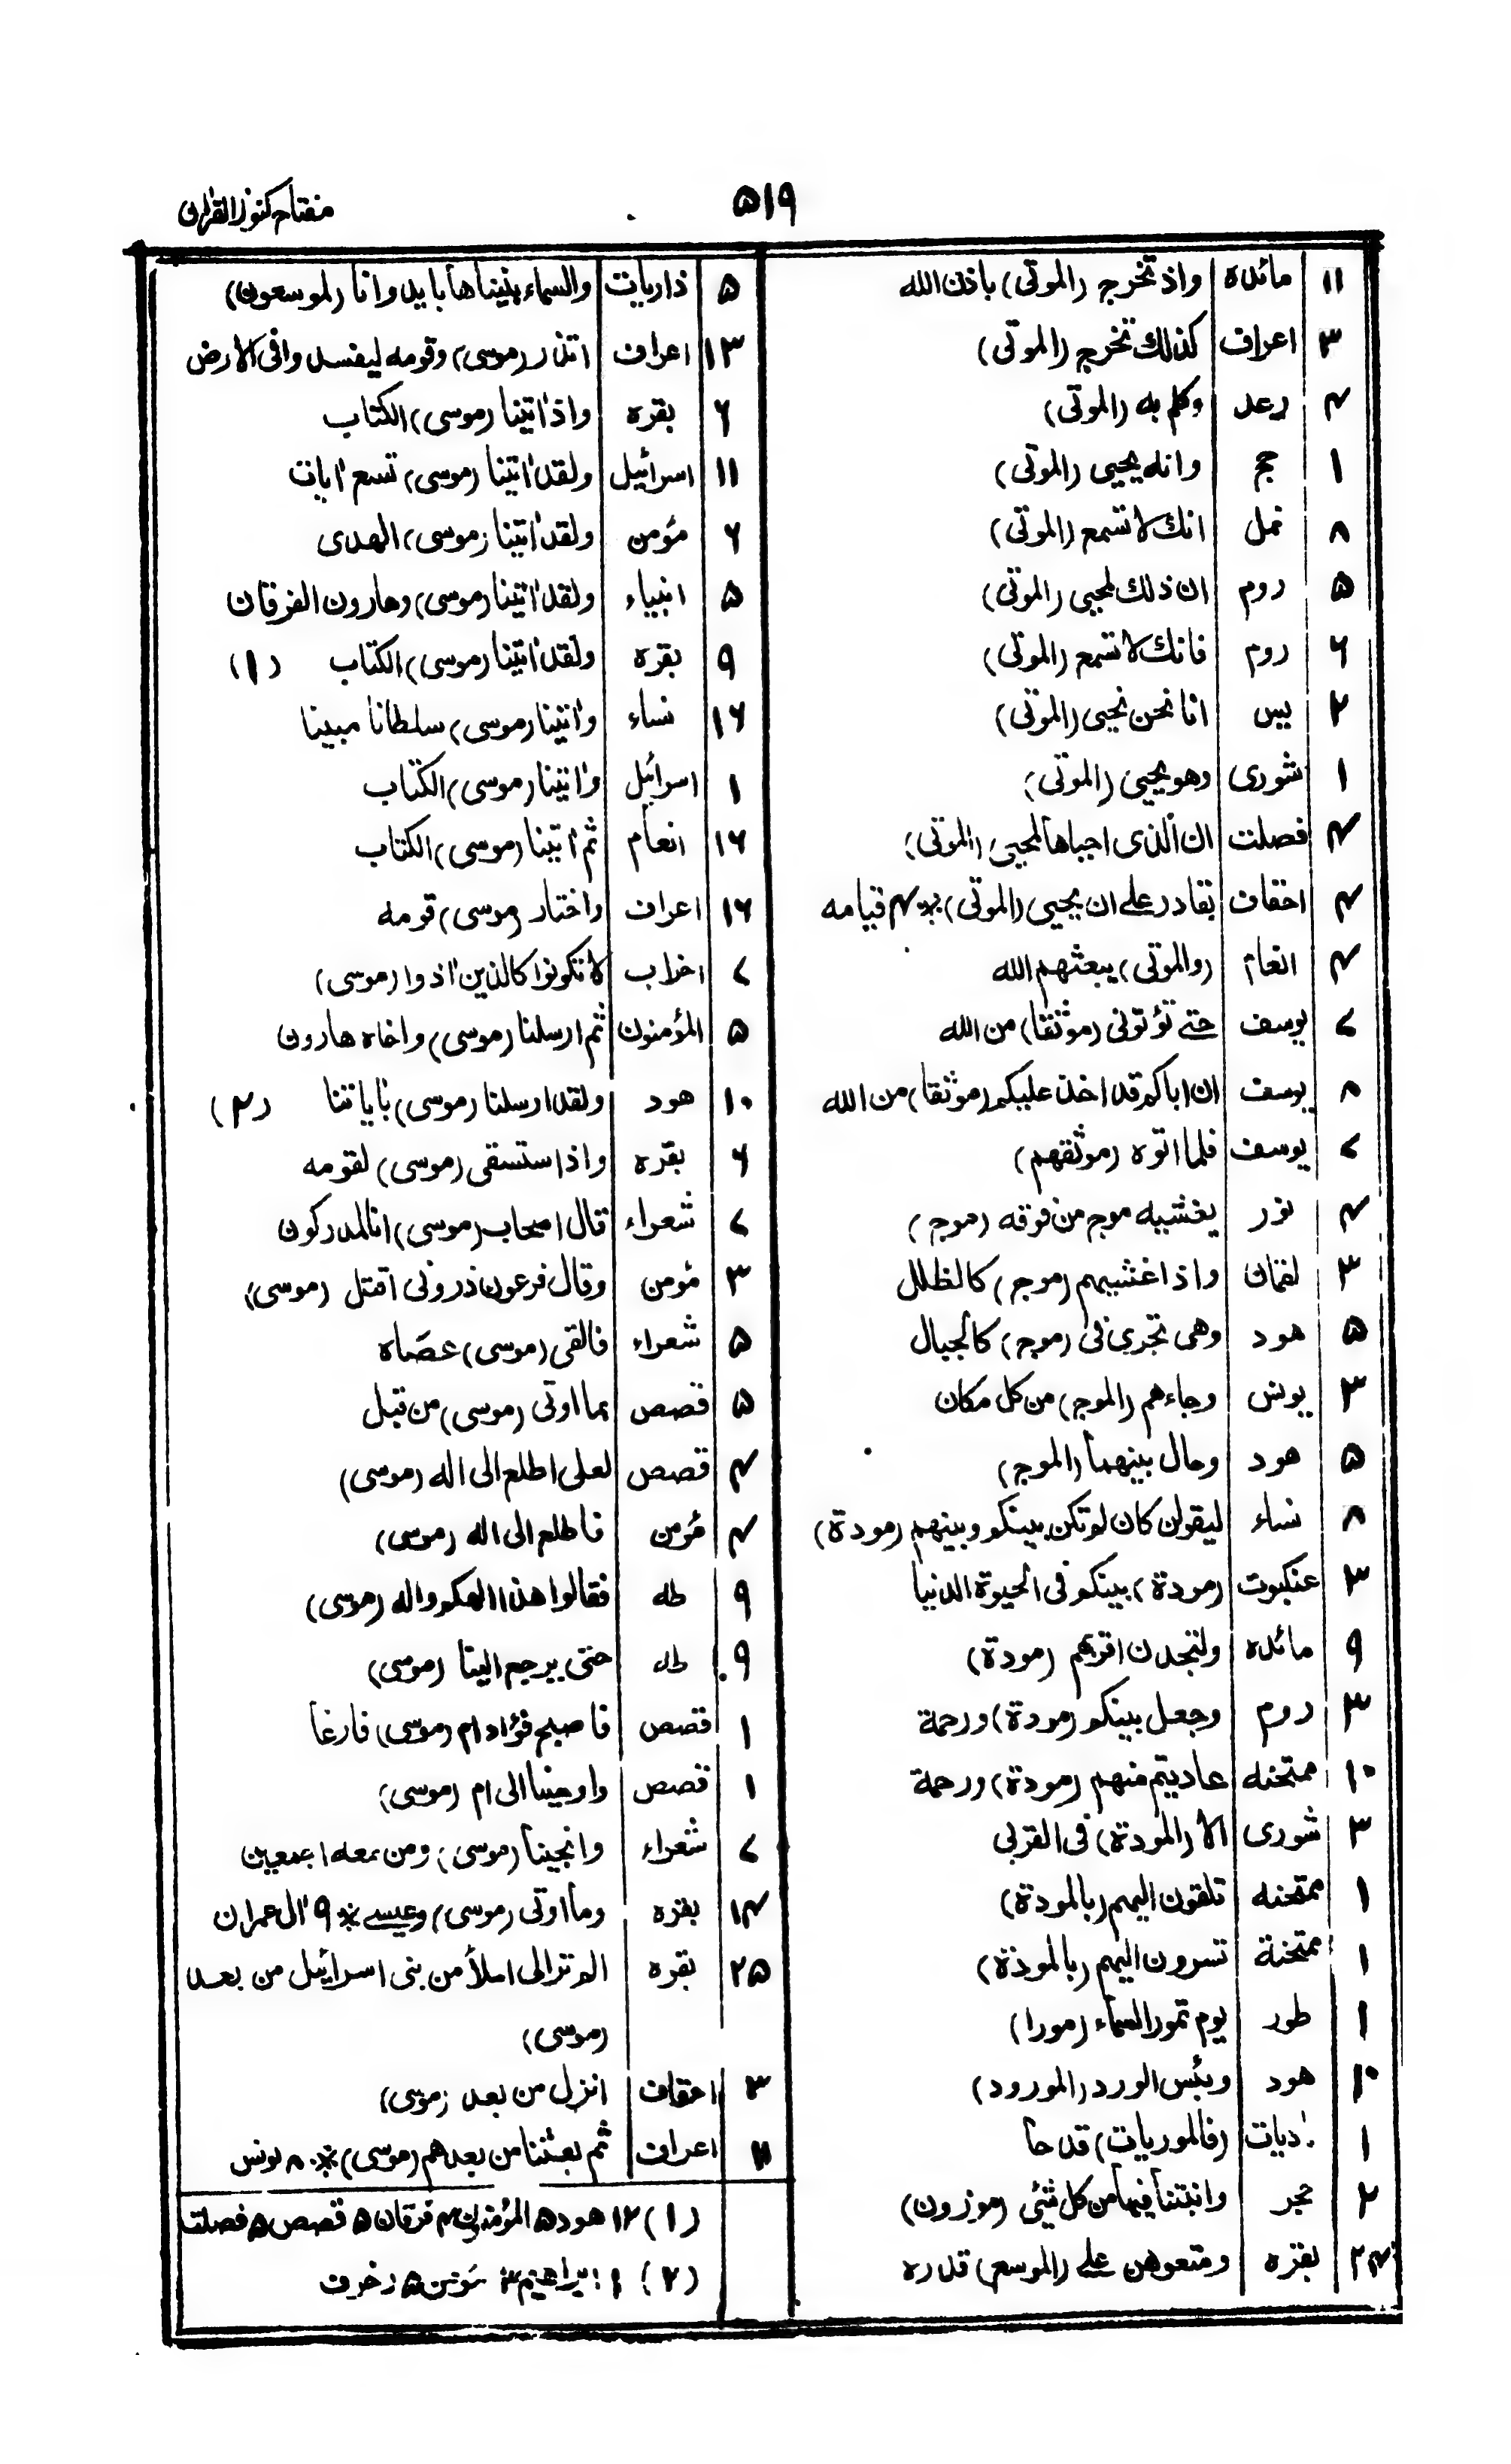 ۵۱۹
مفتاح كنوز القرآن
۱۱ مائده واذ تخرج (الموتى) باذن الله
۳ اعراف كذلك نخرج (الموتى)
۴ رعد وكلم به (الموتى)
۱ حج وانه يحيى (الموتى)
۸ نمل انك لا تسمع (الموتى)
۵ روم ان ذلك لمحيى (الموتى)
۶ روم فانك لا تسمع (الموتى)
۲ يس انا نحن نحيى (الموتى)
۱ شورى وهو يحيى (الموتى)
۴ فصلت ان الذى احياها لمحيى (الموتى)
۴ احقاف بقادر على ان يحيى (الموتى) * ۴ قيامه
۴ انعام (والموتى) يبعثهم الله
۷ يوسف حتى تؤتونى (موثقا) من الله
۸ يوسف ان اباكم قد اخذ عليكم (موثقا) من الله
۷ يوسف فلما اتوه (موثقهم)
۴ نور يغشيه موج من فوقه (موج)
۳ لقمان واذا غشيهم (موج) كالظلل
۵ هود وهى تجرى فى (موج) كالجبال
۳ يونس وجاءهم (الموج) من كل مكان
۵ هود وحال بينهما (الموج)
۸ نساء ليقولن كان لم تكن بينكم وبينهم (مودة)
۳ عنكبوت (مودة) بينكم فى الحيوة الدنيا
۹ مائده ولتجدن اقربهم (مودة)
۳ روم وجعل بينكم (مودة) ورحمة
۱۰ ممتحنه عاديتم منهم (مودة) ورحمة
۳ شورى الا (المودة) فى القربى
۱ ممتحنه تلقون اليهم (بالمودة)
۱ ممتحنة تسرون اليهم (بالمودة)
۱ طور يوم تمور السماء (مورا)
۱۰ هود وبئس الورد (المورود)
۱ ديات (فالموريات) قدحا
۲ حجر وانبتنا فيها من كل شئى (موزون)
بقره ومتعوهن على (الموسع) قدره
۵ ذاريات والسماء بنيناها بايد وانا (لموسعون)
۱۳ اعراف اتذر (موسى) وقومه ليفسدوا فى الارض
۶ بقره واذ اتينا (موسى) الكتاب
۱۱ اسرائيل ولقد اتينا (موسى) تسع ايات
۶ مؤمن ولقد اتينا (موسى) الهدى
۵ انبياء ولقد اتينا (موسى) وهارون الفرقان
۹ بقره ولقد اتينا (موسى) الكتاب (۱)
۱۶ نساء واتينا (موسى) سلطانا مبينا
۱ اسرائيل واتينا (موسى) الكتاب
۱۶ انعام ثم اتينا (موسى) الكتاب
۱۶ اعراف واختار (موسى) قومه
۷ احزاب لا تكونوا كالذين اذوا (موسى)
۵ المؤمنون ثم ارسلنا (موسى) واخاه هارون
۱۰ هود ولقد ارسلنا (موسى) باياتنا (۲)
۶ بقره واذ استسقى (موسى) لقومه
۷ شعراء قال اصحاب (موسى) انا لمدركون
۳ مؤمن وقال فرعون ذرونى اقتل (موسى)
۵ شعراء فالقى (موسى) عصاه
۵ قصص بما اوتى (موسى) من قبل
۴ قصص لعلى اطلع الى اله (موسى)
۴ مؤمن فاطلع الى اله (موسى)
۹ طه فقالوا هذا الهكم واله (موسى)
۹ طه حتى يرجع الينا (موسى)
۱ قصص فاصبح فؤاد ام (موسى) فارغا
۱ قصص واوحينا الى ام (موسى)
۷ شعراء وانجينا (موسى) ومن معه اجمعين
۱۴ بقره وما اوتى (موسى) وعيسى * ۹ ال عمران
۲۵ بقره الم تر الى املا من بنى اسرائيل من بعد
(موسى)
۳ احقاف انزل من بعد (موسى)
۱۱ اعراف ثم بعثنا من بعدهم (موسى) * ۸ يونس
(۱) ۱۲ هود ۵ المؤمنون ۴ فرقان ۵ قصص ۵ فصلت
(۲) ۱ ابراهيم ۳ مؤمن ۵ زخرف